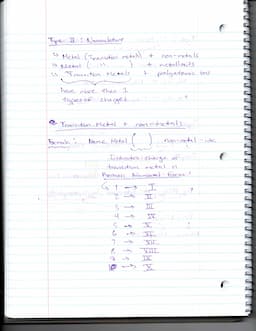 Type II : Nomenclature
↳ Metal (Transition metals) + non-metals
↳ Metal ( " ) + metalloids
↳ Transition Metals + polyatomic ions
have more than 1
types of charges
Transition Metal + non-metals
Formula: Name Metal ( ) non-metal -ide
Indicates charge of
transition metal in
Roman Numeral Form
1 → I
2 → II
3 → III
4 → IV
5 → V
6 → VI
7 → VII
8 → VIII
9 → IX
10 → X